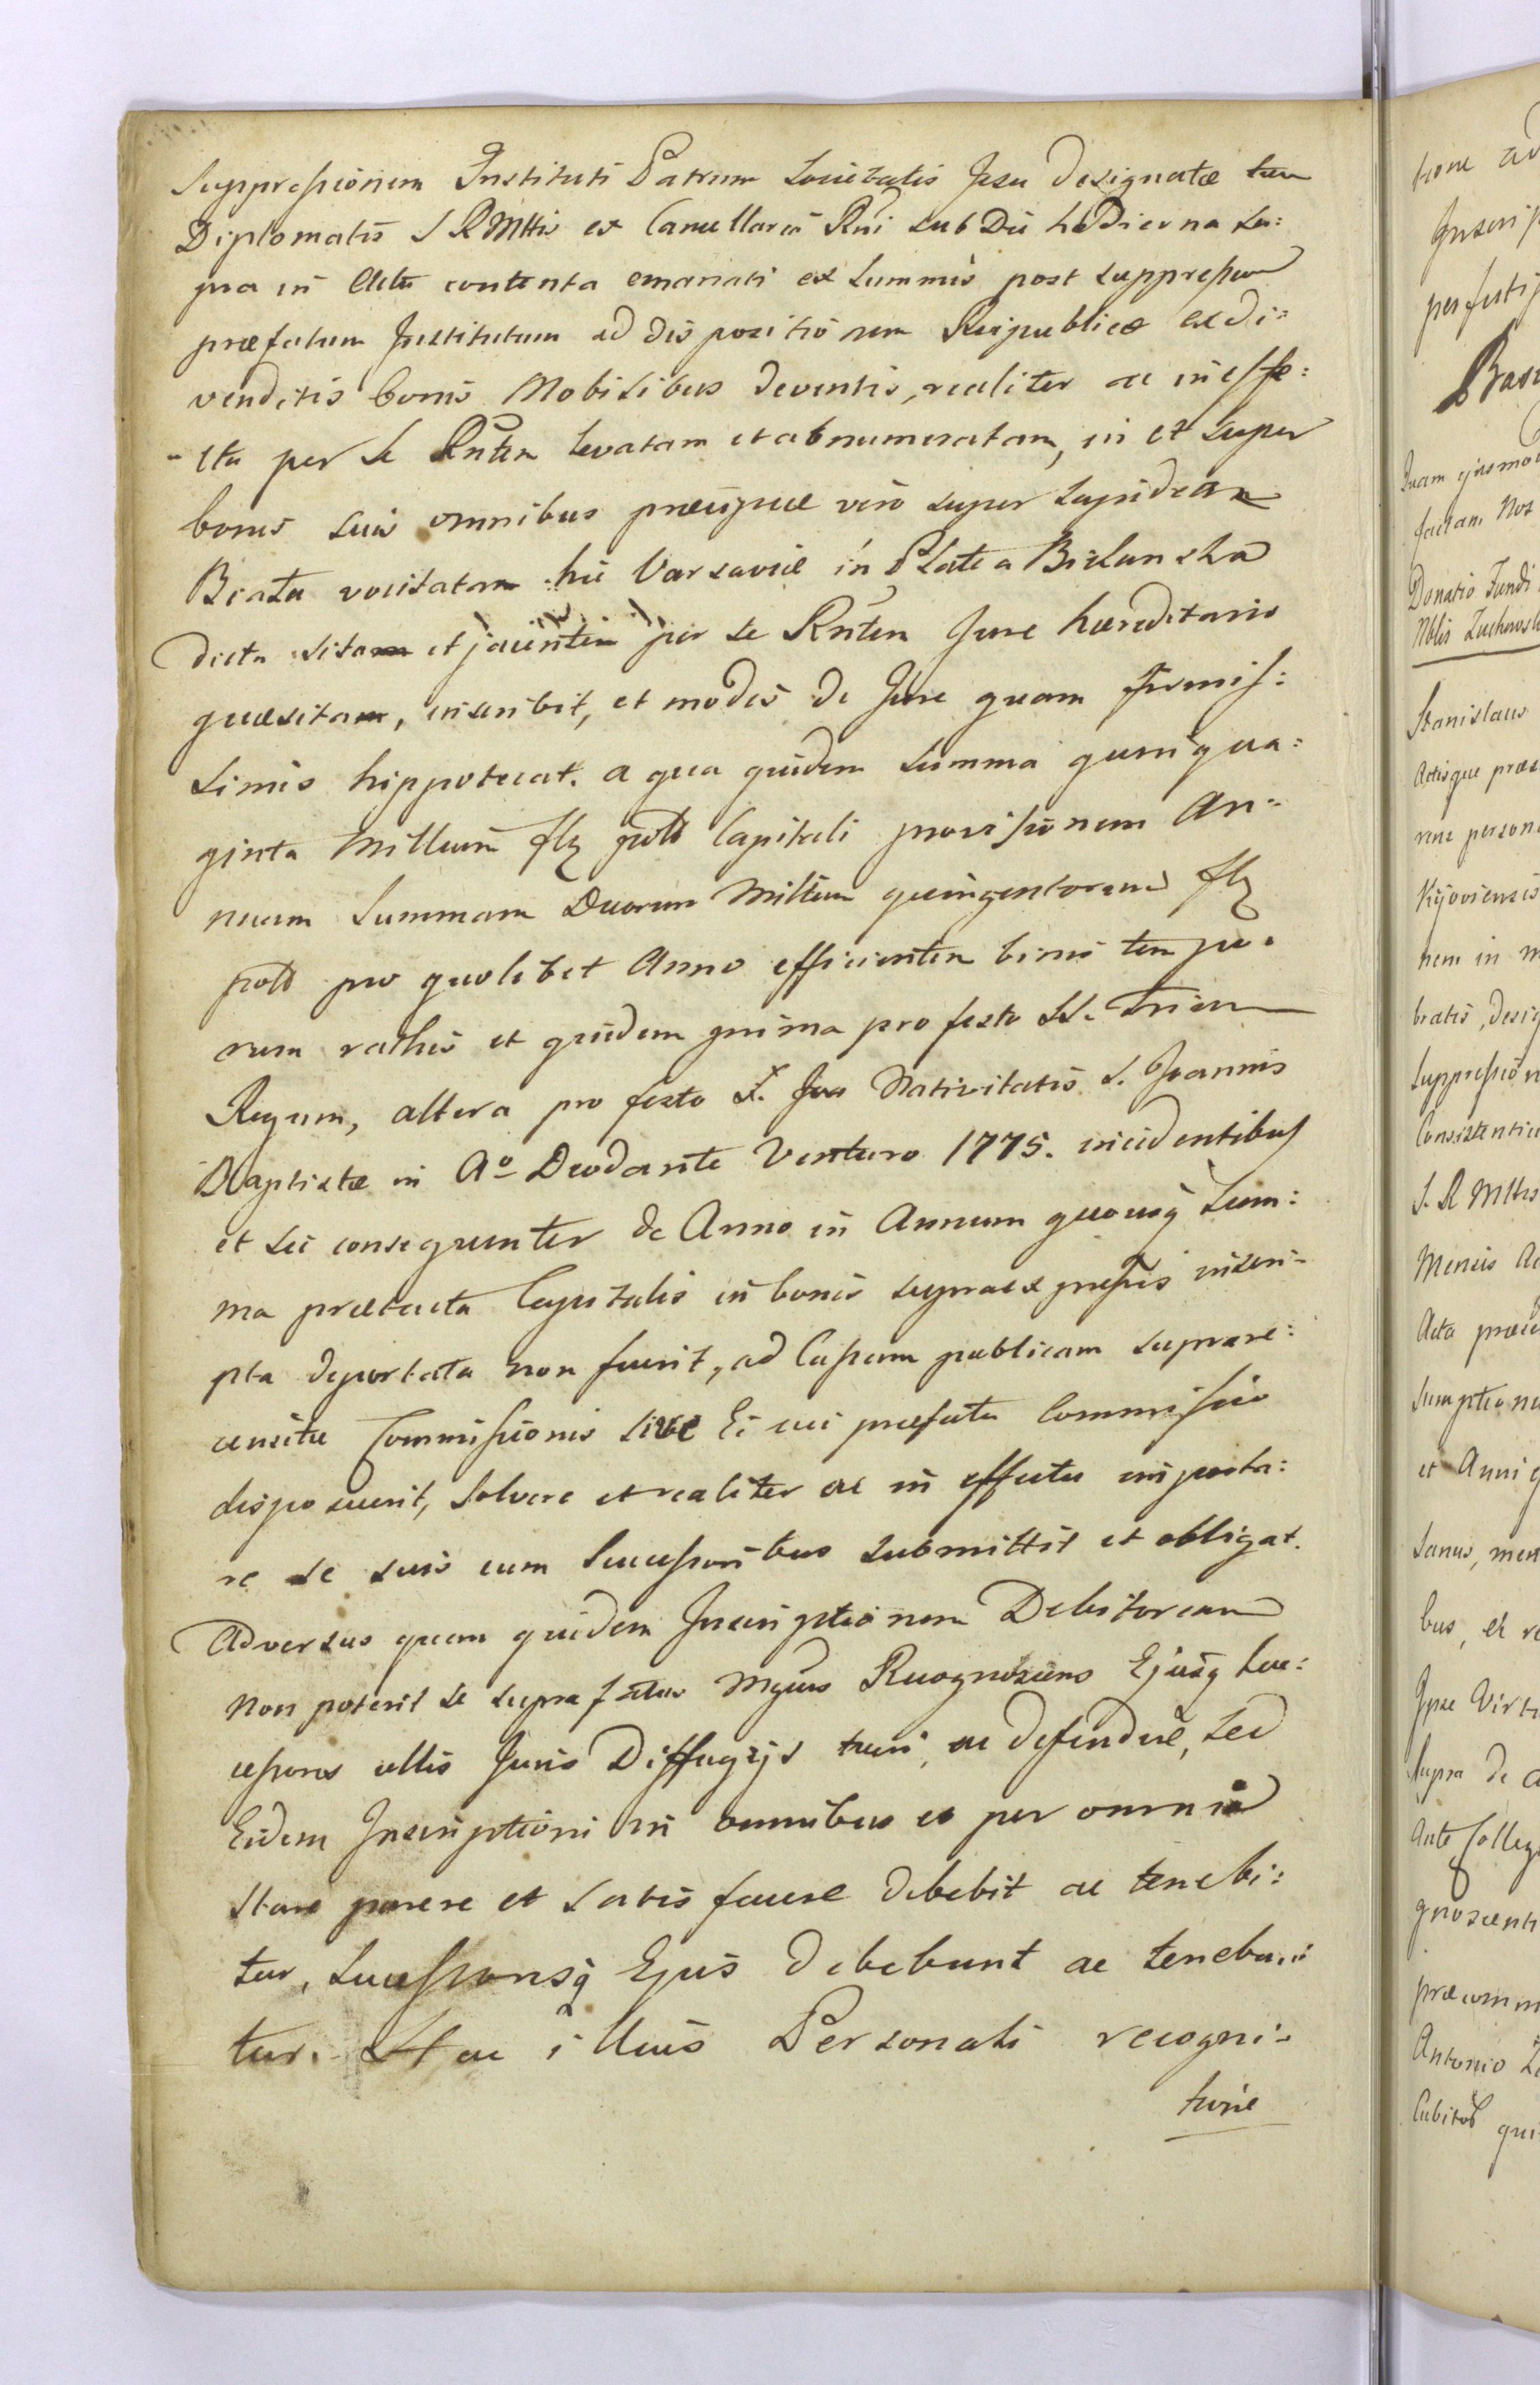 Suppressionem Instituti Patrum Societatis Jesu designatæ tum
Diplomatis S R Mttis ex Cancellaria Rni sub Die hodierna su:
pra in Actu contenta emanati ex summis post suppressum
præfatum Institutum ad dispositionem Reipublicæ ex di:
venditis bonis Mobilibus deventis, realiter ac in effe:
-ctu per se Rnten levatam et abnumeratam, in et super
bonis suis omnibus præcipue vero super lapideam
Beata vocitatam hic Varsaviæ in Platea Bielanska
dicta sitam et jacentem per se Rnten Jure hæreditario
quæsitam, inscribit, et modis de Jure quam firmis:
simis hippotecat. a qua quidem summa quinqua:
ginta Millium flz poll Capitali provisionem An:
nuam Summam Duorum Millium quingentorum flz
poll pro quolibet Anno efficientem binis tempo:
rum rathis et quidem prima pro festo SS. Trium
Regum, altera pro festo S. Joa Nativitatis S. Joannis
Baptistæ in Ao Deodante Venturo 1775. incidentibus
et sic consequenter de Anno in Annum quousq Sum:
ma prætacta Capitalis in bonis supraexpressis inscri-
pta deportata non fuerit, ad Cassam publicam suprare:
censitæ Commissionis sive Ei cui præfata Commissio
disposuerit, Solvere et realiter ac in effectu importa:
re se suis cum Successoribus submittit et obligat.
Adversus quam quidem Inscriptionem Debitoream
non poterit se supra fatus Mgcus Recognoscens Ejusq Suc:
cessores ullis Juris Diffugijs tueri, ac defendere, sed
Eidem Inscriptioni in omnibus et per omnia
stare parere et satisfacere debebit ac tenebi:
tur, Successoresq Ejus debebunt ac tenebun:
tur. Hac illius Personali recogni-
tione
tione ad
Inscrip
per festi
Quam ejusmo
factam Nos
Donatio Fundi
Nblis Zuchowsk
Stanislaus
Actisque præs
rens person
Kijoviensis
hens in m
bratis, desig
Suppressio n
Consistentiæ
S. R Mttis
Mensis Au
Acta præs
Sumptio n
et Anni q
Sanus, men
bus, et re
Ipse Virt
Supra de a
Ante Colleg
gnoscenti
præcomm
Antonio Z
Cubitos qui